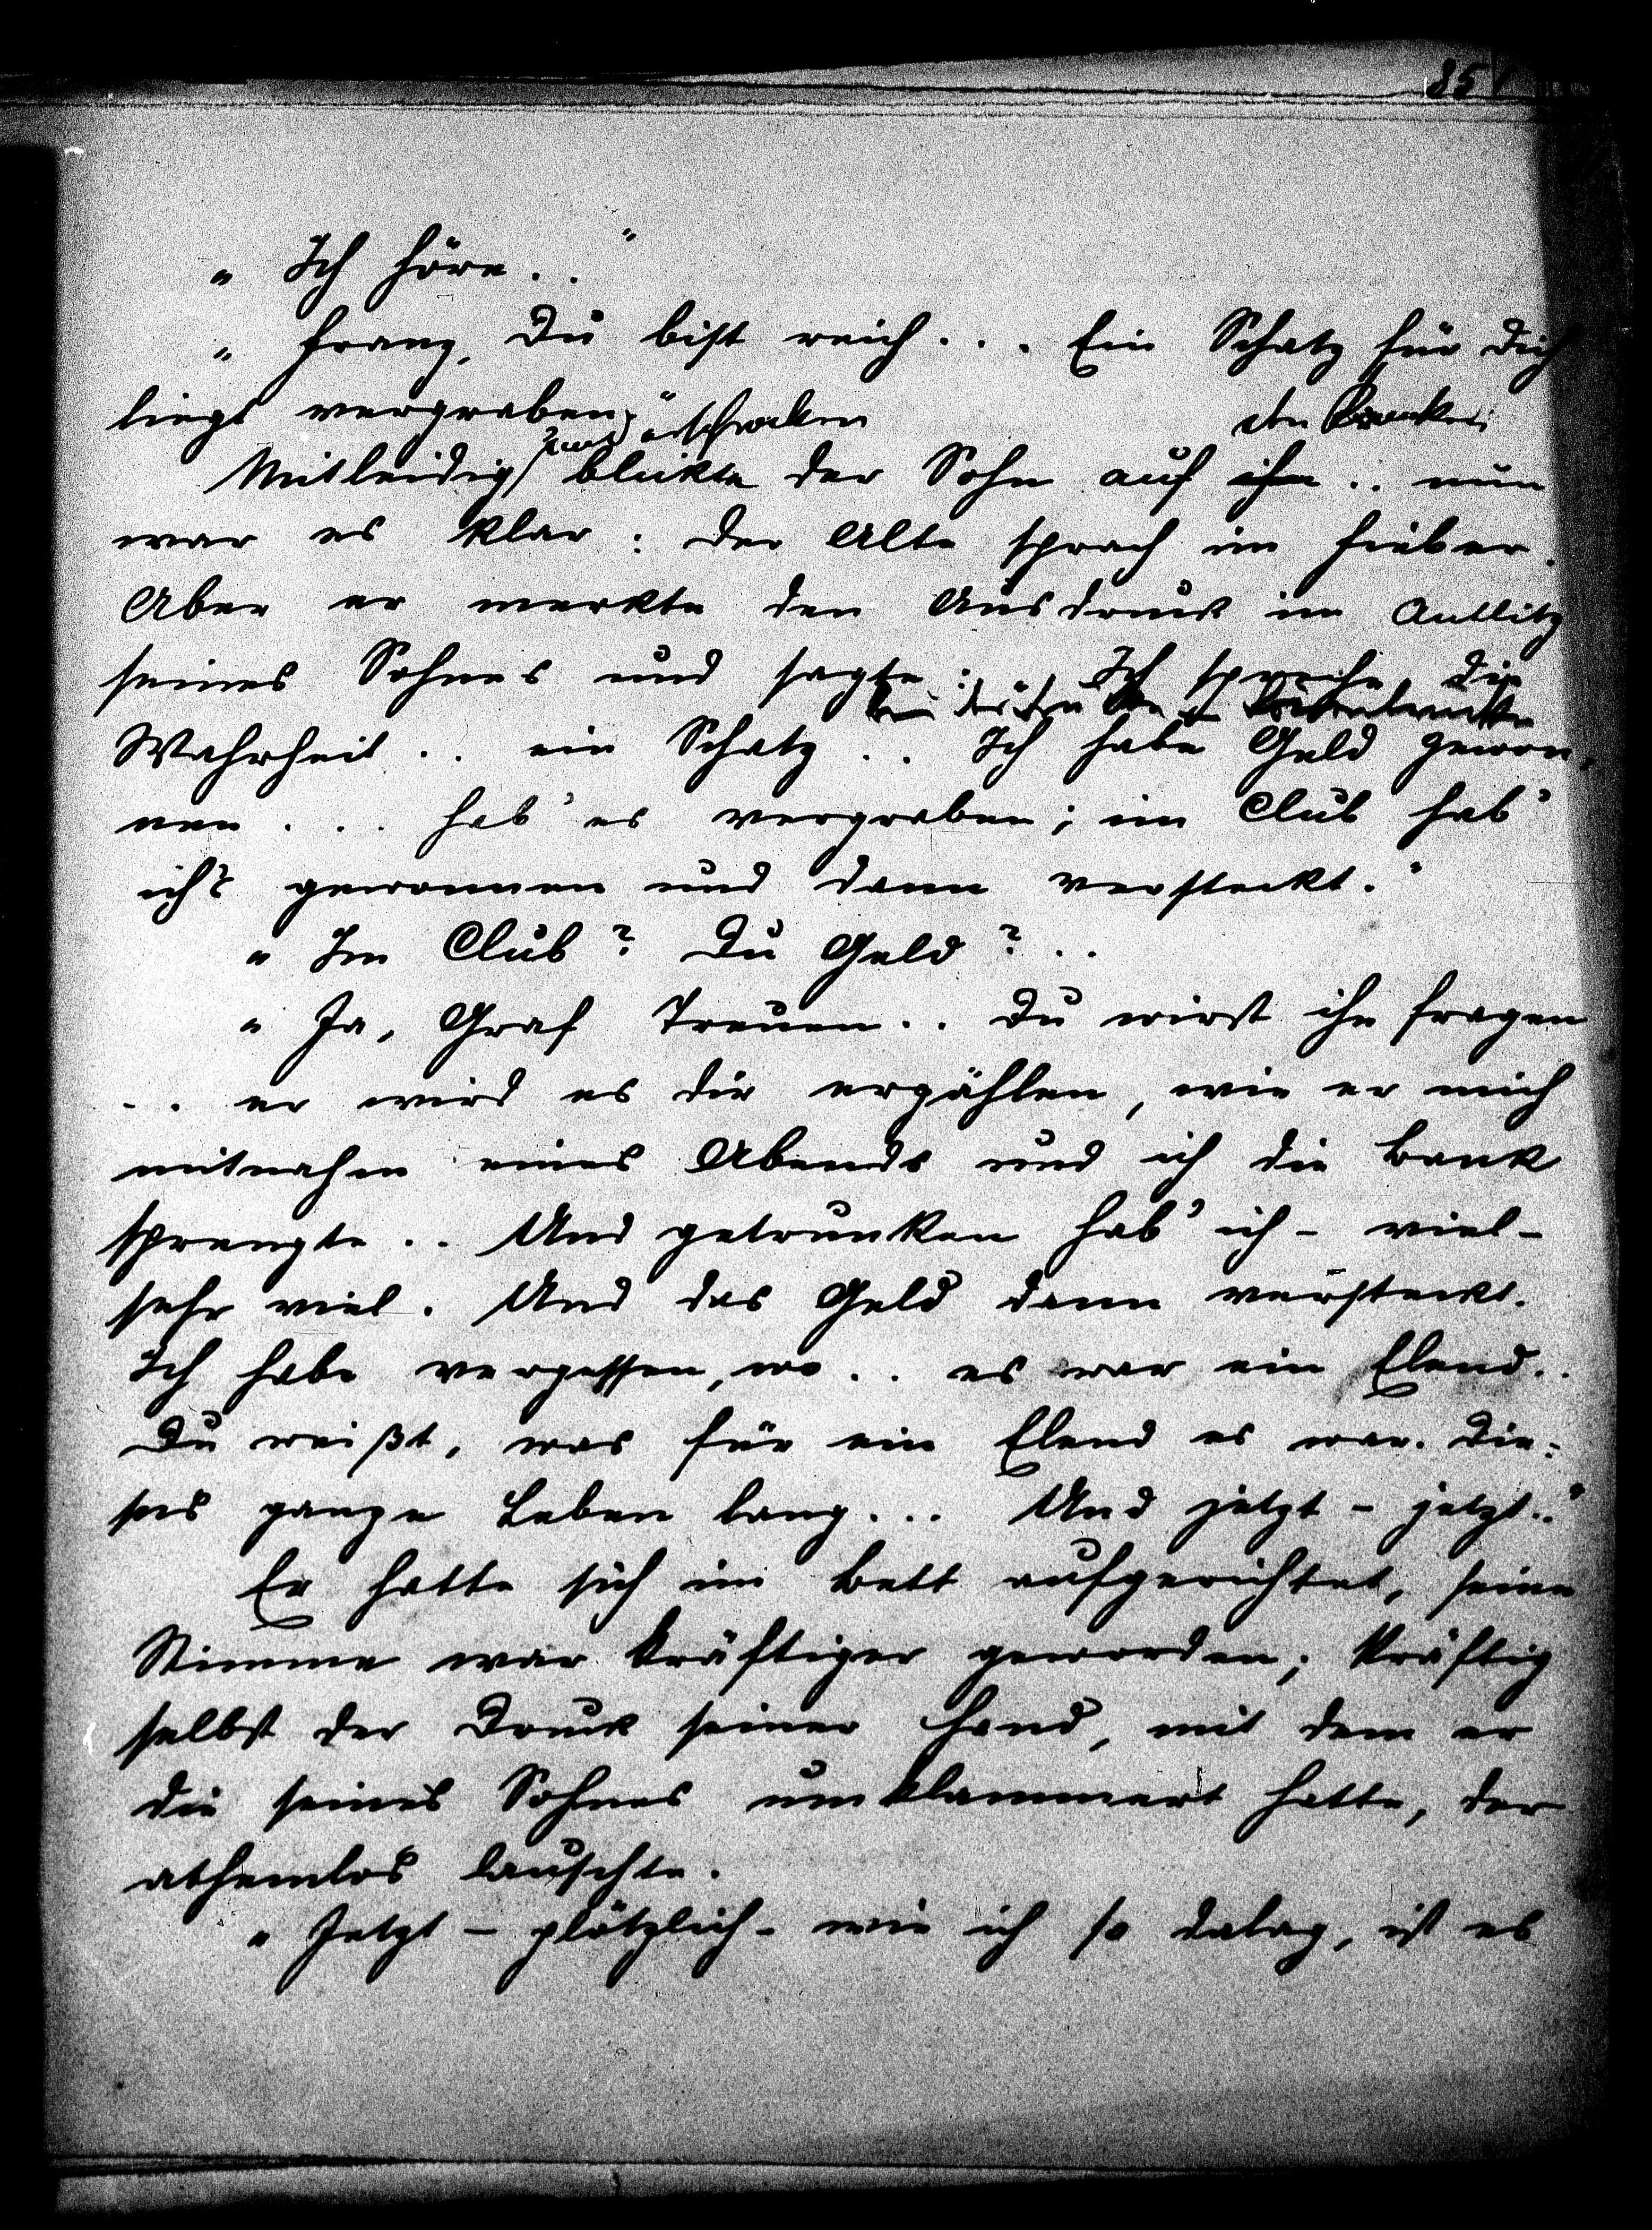 85
„Ich höre. . "
„Franz, Du bist reich . . . Ein Schatz für Dich
liegt vergraben."
und erschrocken den Kranken
Mitleidig blickte der Sohn auf ihn . . nun
war es klar: der Alte sprach im Fieber.
Aber er merkte den Ausdruck im Antlitz
seines Sohnes und sagte: Ich spreche die
Wahrheit . . ein Schatz . . Ich habe Geld gewon-
nen . . . hab' es vergraben; im Club hab'
ich's gewonnen und dann versteckt."
„Im Club? Du Geld? . .
„Ja, Graf Treuen . . Du wirst ihn fragen
. . er wird es dir erzählen, wie er mich
mitnahm eines Abends und ich die Bank
sprengte . . Und getrunken hab' ich - viel -
sehr viel. Und das Geld dann versteckt.
Ich habe vergessen, wo . . es war ein Elend. .
Du weißt, was für ein Elend es war. Die-
ses ganze Leben lang . . . Und jetzt - jetzt . ."
Er hatte sich im Bett aufgerichtet, seine
Stimme war kräftiger geworden; kräftig
selbst der Druck seiner Hand, mit dem er
die seines Sohnes umklammert hatte, der
athemlos lauschte.
„Jetzt - plötzlich - wie ich so dalag, ist es